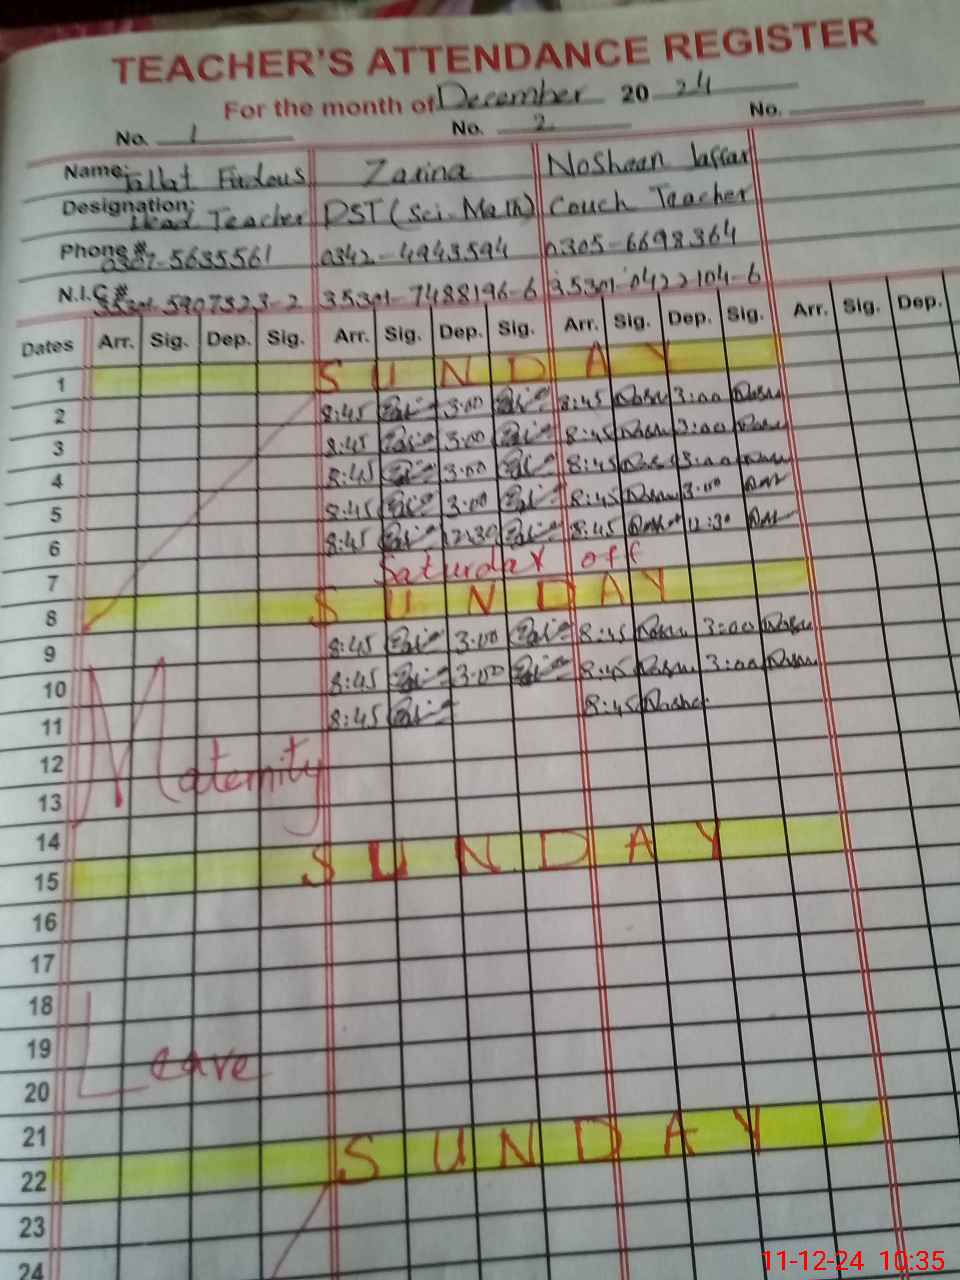 TEACHER'S ATTENDANCE REGISTER
For the month of December 20 24
No. 1 No. 2 No.
Name: Zarina Noshaan Jaffar
Designation: Head Teacher PST (Sci-Math) Couch Teacher
Phone # 0307-5635561 0342-4943594 0305-6698364
N.I.C # 35301-5907323-2 35301-7488196-6 35301-0422104-6
Dates Arr. Sig. Dep. Sig. Arr. Sig. Dep. Sig. Arr. Sig. Dep. Sig. Arr. Sig. Dep.
1 SUNDAY
2 8:45 3:00 8:45 3:00
3 8:45 3:00 8:45 3:00
4 8:45 3:00 8:45 3:00
5 8:45 3:00 8:45 3:00
6 8:45 12:30 8:45 12:30
7 Saturday off
8 SUNDAY
9 8:45 3:00 8:45 3:00
10 8:45 3:00 8:45 3:00
11 8:45 8:45
12 Maternity
13
14
15 SUNDAY
16
17
18
19 Leave
20
21
22 SUNDAY
23
24
11-12-24 10:35